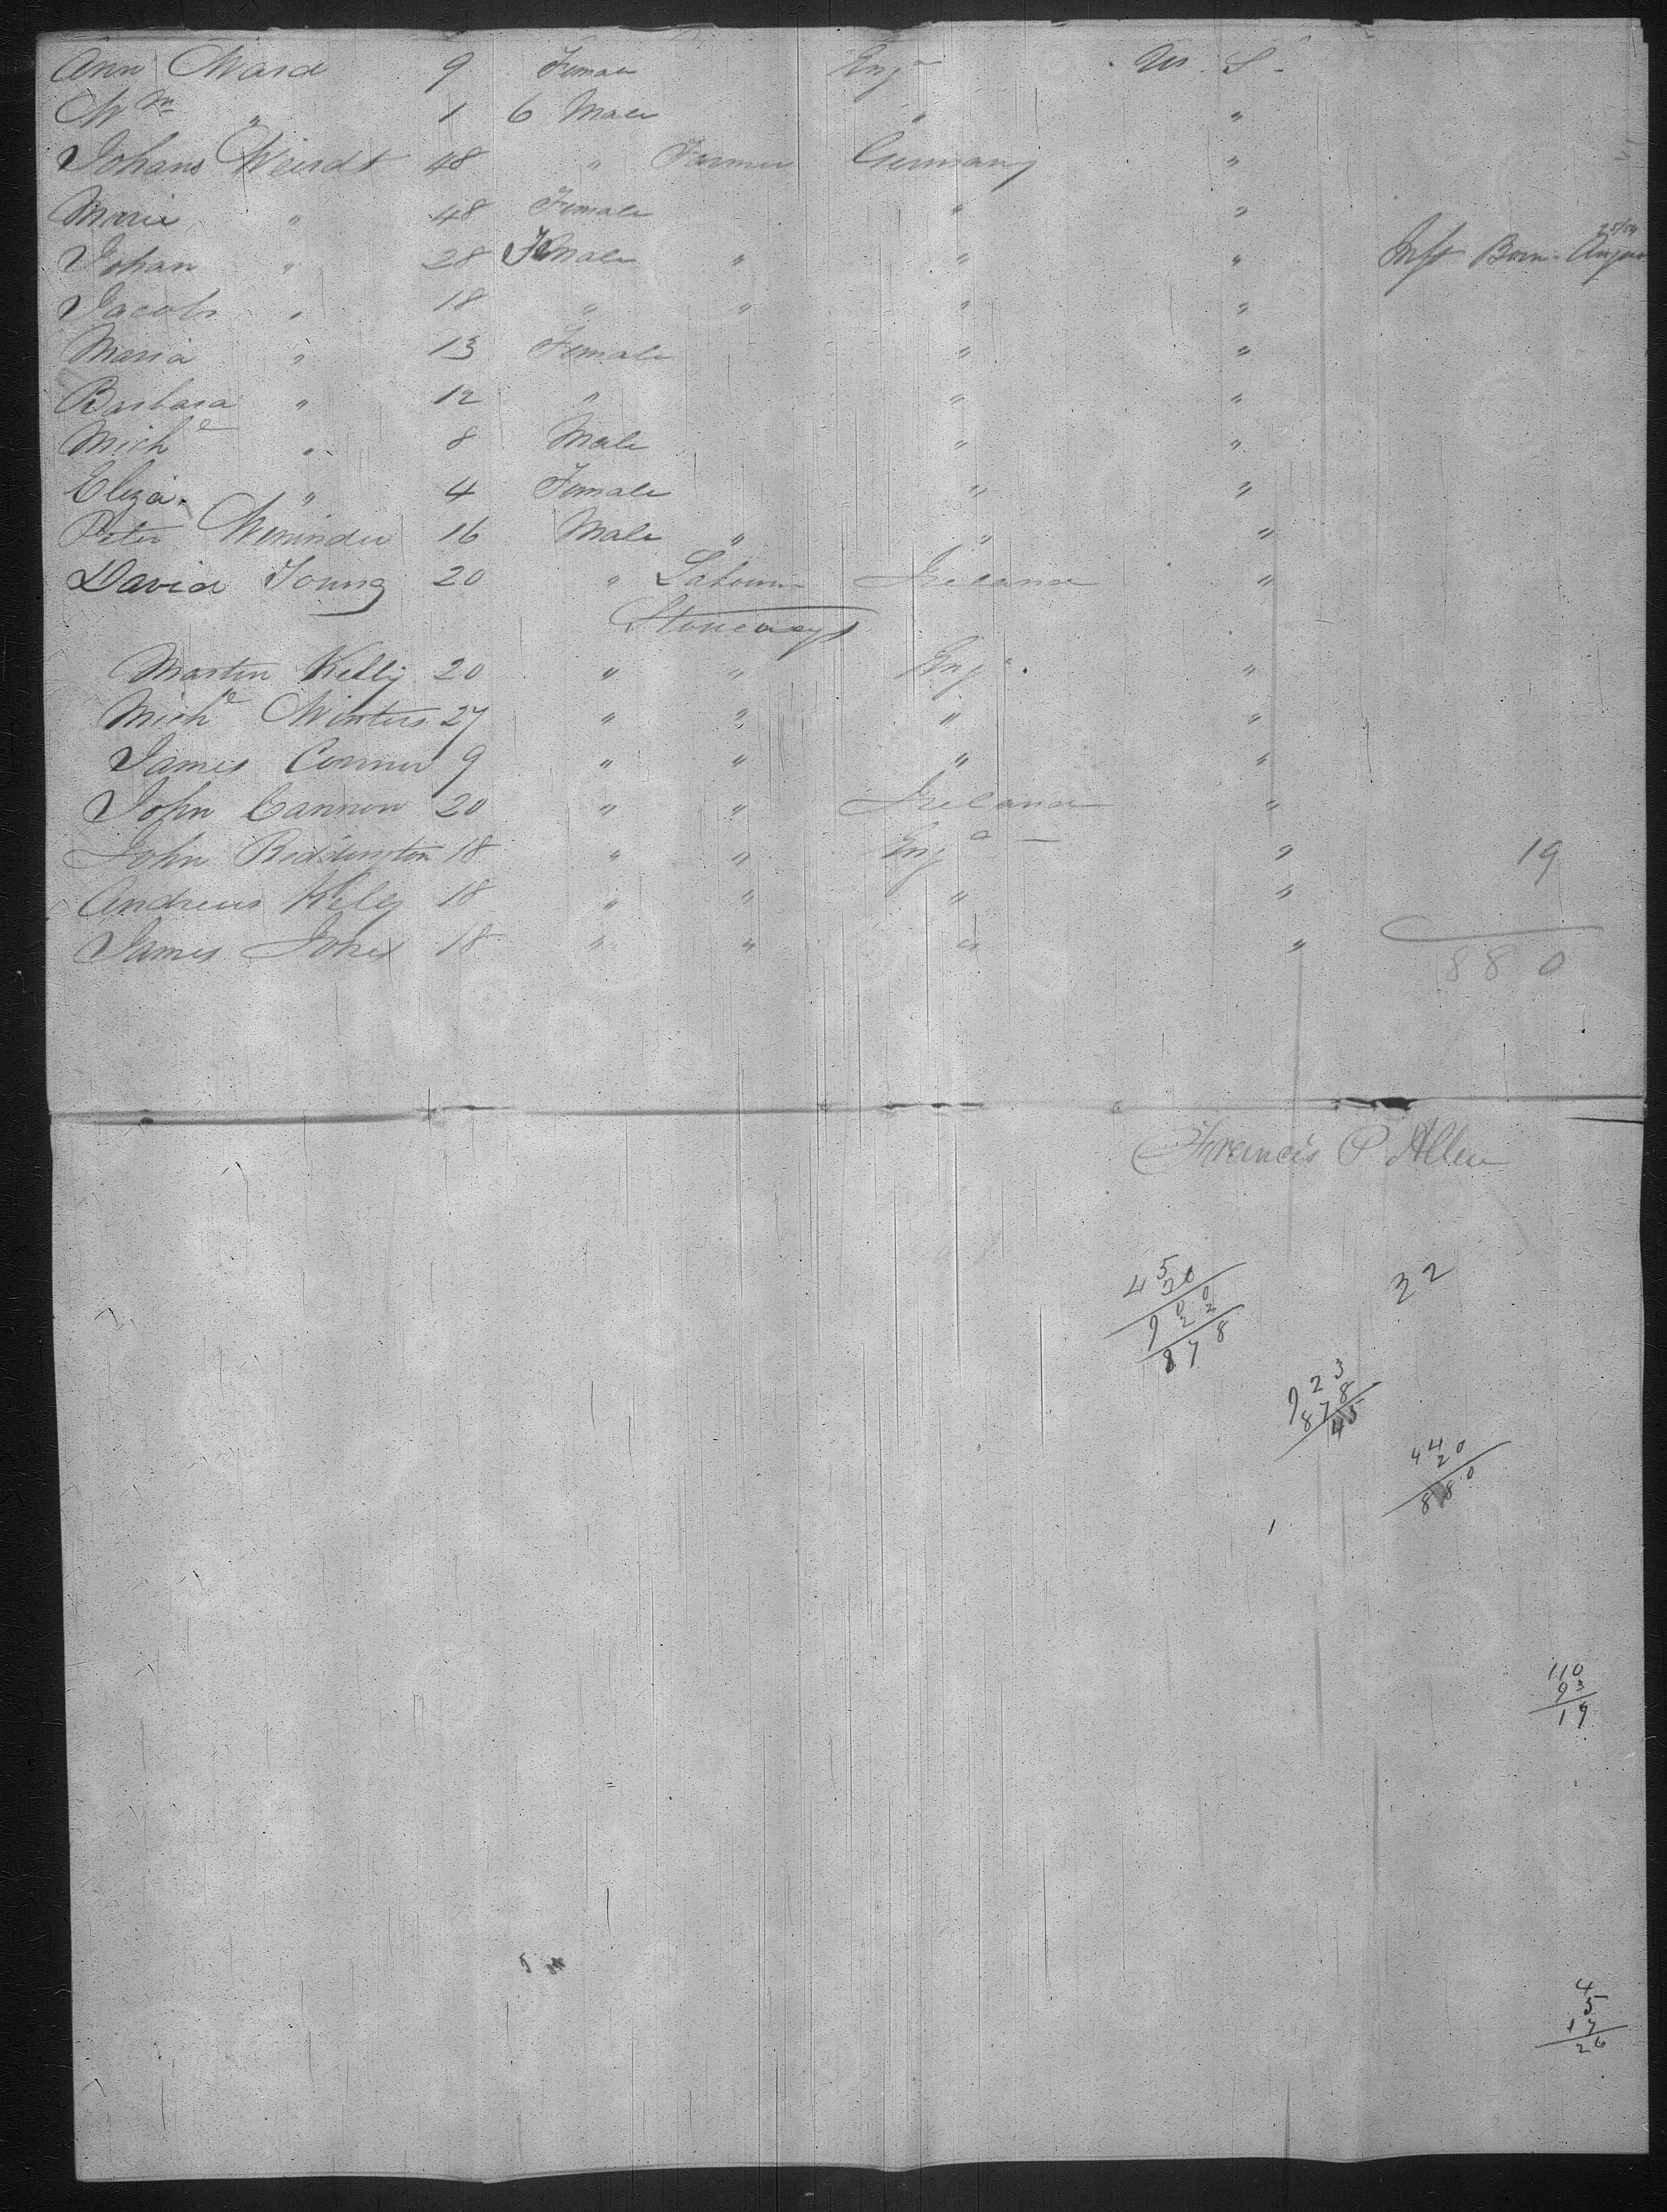 Ann Ward 9 Female Eng^d U. S.
W^m " 1 6 Male " "
Johans Weirdt 48 " Farmer Germany "
Maria " 48 Female " "
Johan " 28 Female " " " Inft Born August 25/54
Jacob " 18 " " " "
Maria " 13 Female " "
Barbara " 12 " " "
Mich^l " 8 Male " "
Eliza " 4 Female " "
Peter Weninder 16 Male " " "
David Young 20 " Labourer Ireland "
Stoweways
Martin Kelly 20 " " Eng^d "
Mich^l Winters 27 " " " "
James Connor 9 " " " "
John Cannon 20 " " Ireland "
John Reddington 18 " " Eng^d " 19
Andrew Kelly 18 " " " "
James Jones 18 " " " "
880
Francis P Allen
450
20
900
22
878
32
923
878
45
440
20
880
110
93
19
4
5
17
26